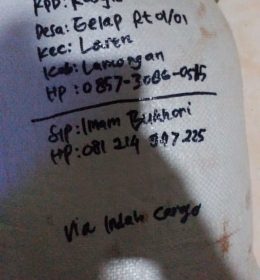 Kpd:
Desa: Gelap Rt 01/01
Kec: Laren
Kab: Lamongan
HP : 0857-3086-0515
Sip: Imam Bukhori
HP: 081 214 997 225
Via Indah Cargo